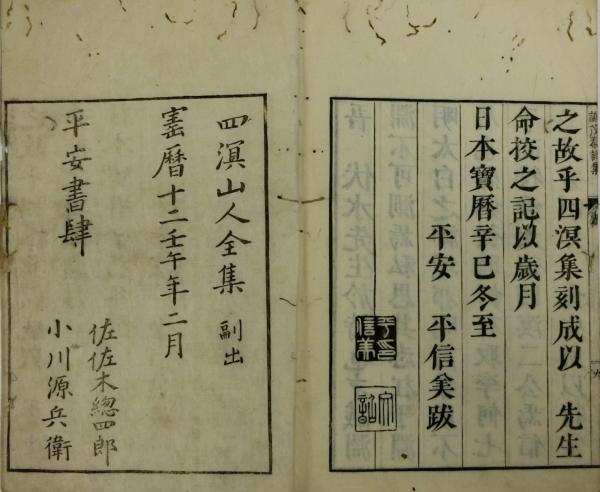 之故乎四溟集刻成以 先生
命挍之記以歲月
日本寶曆辛巳冬至
平安 平信美跋
四溟山人全集 副出
寳曆十二壬午年二月
平安書肆
佐佐木總四郎
小川源兵衛